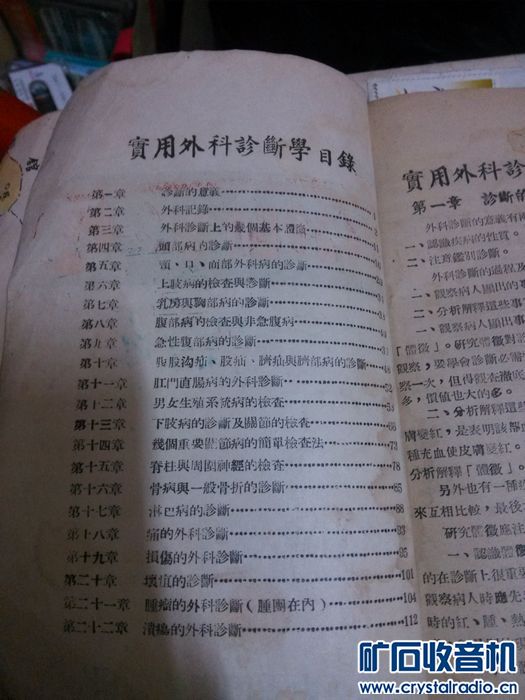 實用外科診斷學目錄
第一章 診斷的意義 1
第二章 外科記錄
第三章 外科診斷上的幾個基本體徵
第四章 頭部病的診斷 11
第五章 頸、口、面部外科病的診斷
第六章 上肢病的檢查與診斷
第七章 乳房與胸部病的診斷
第八章 腹部病的檢查與非急腹病
第九章 急性腹部病的診斷
第十章 腹股沟疝、股疝、臍疝與臍部病的診斷
第十一章 肛門直腸病的外科診斷
第十二章 男女生殖系統病的檢查 54
第十三章 下肢病的診斷及關節的檢查 66
第十四章 幾個重要關節病的簡單檢查法 73
第十五章 脊柱與周圍神經的檢查 78
第十六章 骨病與一般骨折的診斷 85
第十七章 淋巴病的診斷 88
第十八章 的外科診斷 93
第十九章 損傷的外科診斷 95
第二十章 壞疽的診斷 101
第二十一章 腫瘤的外科診斷（腫團在內） 104
第二十二章 潰瘍的外科診斷 112
實用外科診
第一章 診斷的
外科診斷的意義有
一、認識疾病的性質。
二、注意鑑別診斷。
外科診斷的過程及
一、觀察病人顯出的
二、分析解釋這些事
一、觀察病人顯出事
「體徵」。研究體徵對診
觀察，要學會診斷必需
察一次，但得觀查澈底
多，價值也大的多。
二、分析解釋這些
膚變紅，是表明該部血
種充血使皮膚變紅。
分析解釋「體徵」的
另外也有一種
來互相比較，最後
研究體徵應注
一、認識體徵
的在診斷上很重要
觀察病人時應先
時的紅、腫、熱
矿石收音机
www.crystalradio.cn